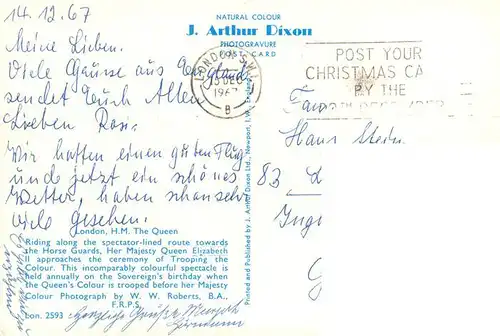 14.12.67
Meine Lieben.
Viele Grüsse aus England
sendet Euch Allen
Lieben Rosi.
Wir hatten einen guten Flug
und jetzt ein schönes
Wetter, haben schon sehr
viel gesehen.
NATURAL COLOUR
J. Arthur Dixon
PHOTOGRAVURE
POST CARD
LONDON S.W.1.
13 DEC
1967
B
POST YOUR
CHRISTMAS CA
BY THE
Fam
Hans Stern
83 L
Ingo
G
Printed and Published by J. Arthur Dixon Ltd., Newport, I.W., England
London, H.M. The Queen
Riding along the spectator-lined route towards
the Horse Guards, Her Majesty Queen Elizabeth
II approaches the ceremony of Trooping the
Colour. This incomparably colourful spectacle is
held annually on the Sovereign's birthday when
the Queen's Colour is trooped before her Majesty
Colour Photograph by W. W. Roberts, B.A.,
F.R.P.S.
Lon. 2593
Herzliche Grüße